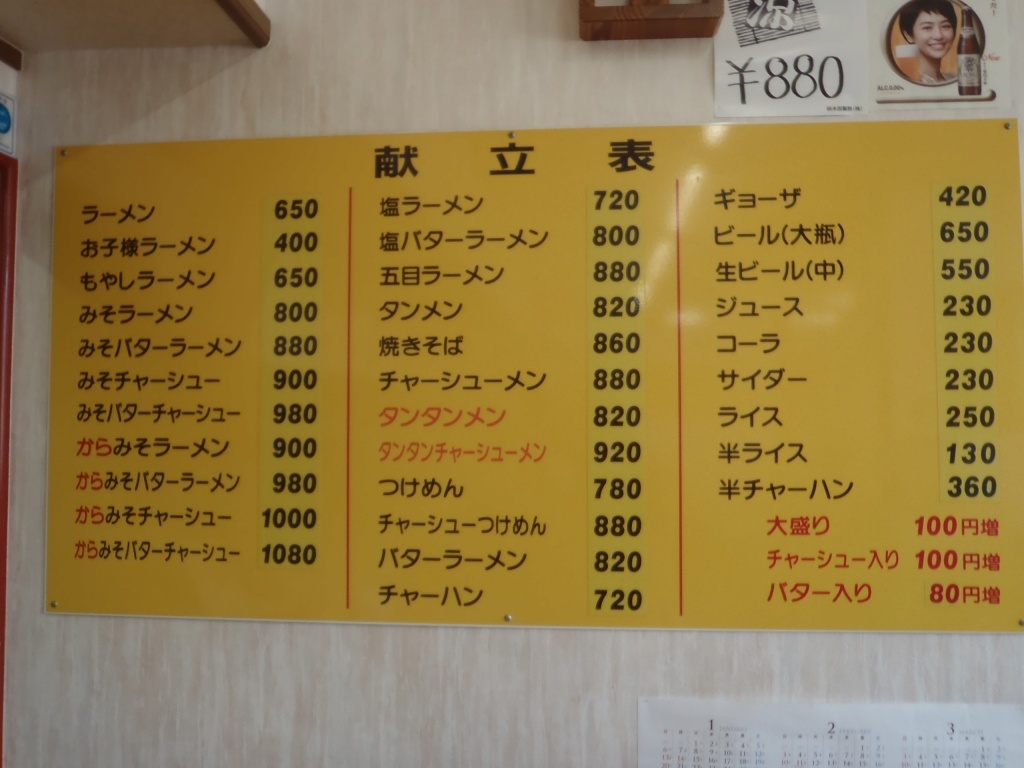 涼
¥880
ALC.0.00%
献立表
ラーメン 650
お子様ラーメン 400
もやしラーメン 650
みそラーメン 800
みそバターラーメン 880
みそチャーシュー 900
みそバターチャーシュー 980
からみそラーメン 900
からみそバターラーメン 980
からみそチャーシュー 1000
からみそバターチャーシュー 1080
塩ラーメン 720
塩バターラーメン 800
五目ラーメン 880
タンメン 820
焼きそば 860
チャーシューメン 880
タンタンメン 820
タンタンチャーシューメン 920
つけめん 780
チャーシューつけめん 880
バターラーメン 820
チャーハン 720
ギョーザ 420
ビール(大瓶) 650
生ビール(中) 550
ジュース 230
コーラ 230
サイダー 230
ライス 250
半ライス 130
半チャーハン 360
大盛り 100円増
チャーシュー入り 100円増
バター入り 80円増
1 2 3